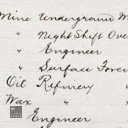 Mine Underground M
" Night Shift Over
" Engineer
" Surface Fore
Oil Refinery
Wax " "
" Engineer